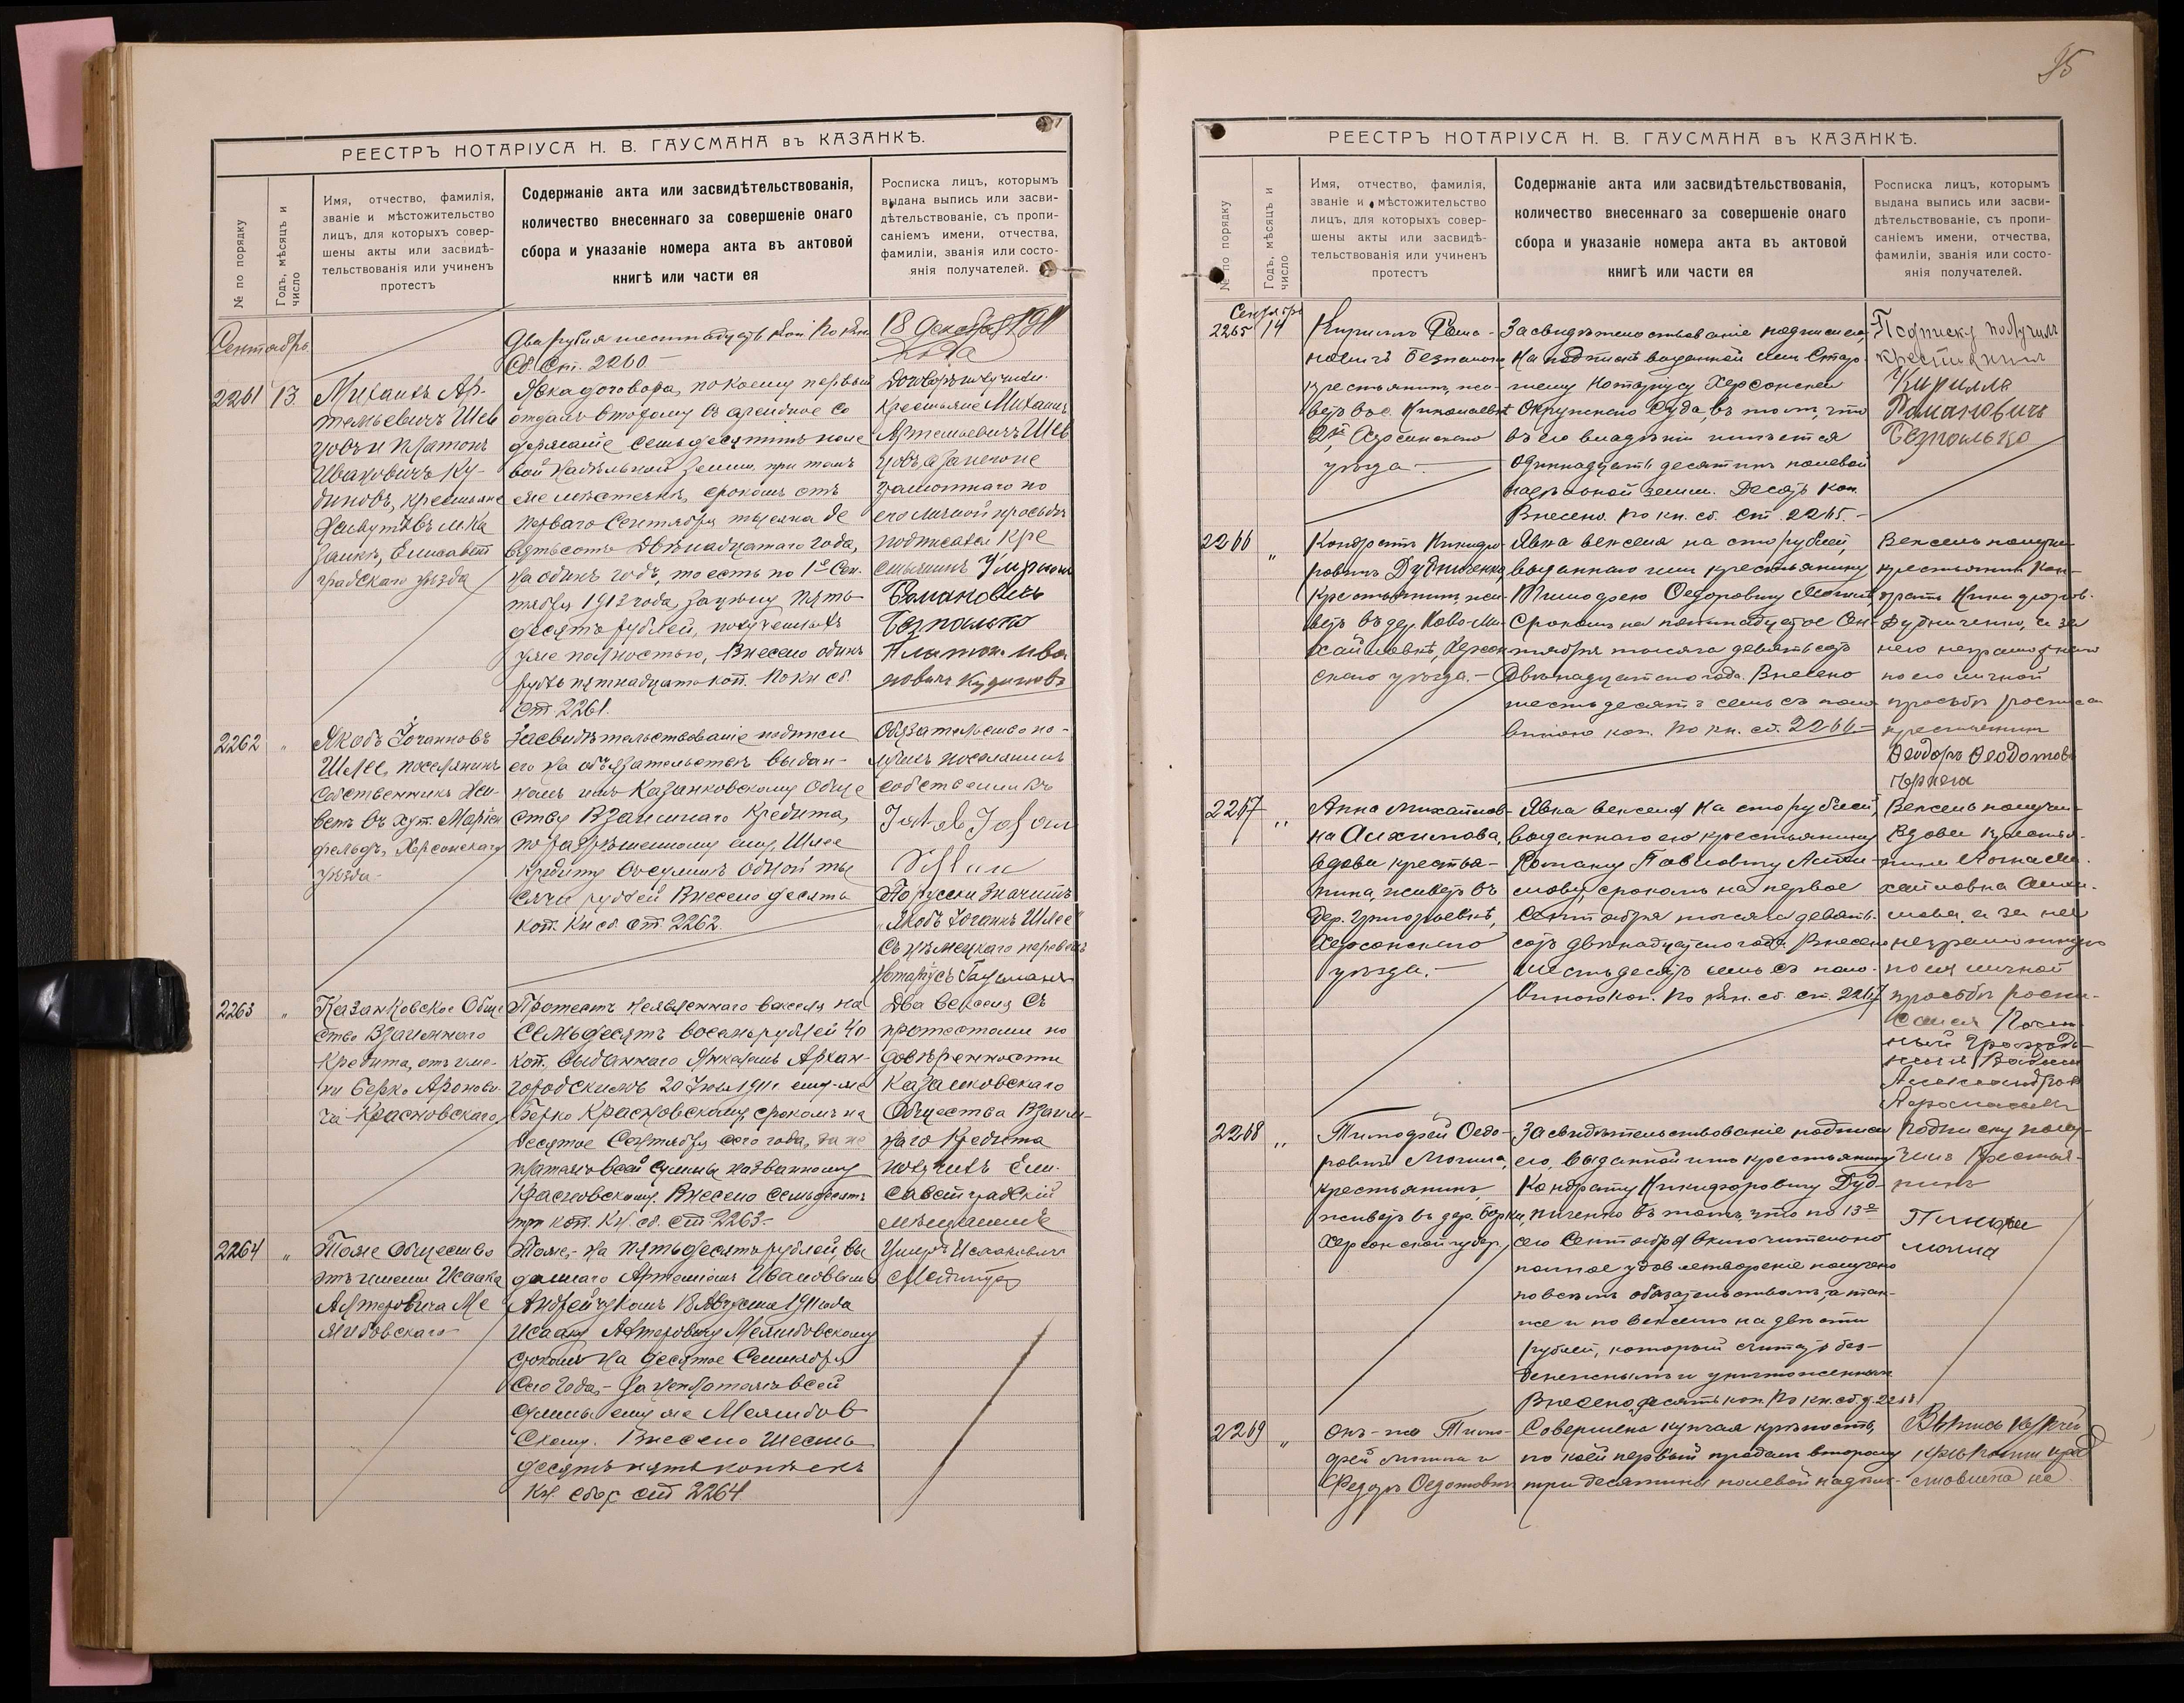 РЕЕСТРЪ НОТАРІУСА Н. В. ГАУСМАНА въ КАЗАНКѢ.
№ по порядку
Годъ, мѣсяцъ и
число
Имя, отчество, фамилія,
званіе и мѣстожительство
лицъ, для которыхъ совер-
шены акты или засвидѣ-
тельствованія или учиненъ
протестъ
Содержаніе акта или засвидѣтельствованія,
количество внесеннаго за совершеніе онаго
сбора и указаніе номера акта въ актовой
книгѣ или части ея
Росписка лицъ, которымъ
выдана выпись или засви-
дѣтельствованіе, съ пропи-
саніемъ имени, отчества,
фамиліи, званія или состо-
янія получателей.
Сентябрь
Два рубля шестнадцать коп. По кн.
Сб. Ст. 2260 -
18 Декабря 1911
года
2261 13
Михаилъ Ар-
темьевичъ Шев
цовъ и Платонъ
Ивановичъ Ку-
диновъ, крестьяне
живутъ въ м. Ка
занкѣ, Елисавет
градскаго уѣзда
Явка договора, по коему первый
отдалъ второму въ арендное со
держаніе семь десятинъ поле
вой надѣльной земли, при томъ
же мѣстечкѣ, срокомъ отъ
перваго Сентября тысяча де
вятьсотъ двѣнадцатаго года,
на одинъ годъ, то есть по 1е Сен.
тября 1913 года, за цѣну пять-
десятъ рублей, полученныхъ
уже полностью. Внесено одинъ
рубль пятнадцать коп. По кн сб.
ст. 2261.
Договоръ получили
Крестьяне Михаилъ
Артемьевичъ Шев
цовъ, а за него не
грамотнаго по
его личной просьбѣ
подписался кре
стьянинъ Кирилъ
Романовичъ
Безпалько
Платонъ Ива
новичъ Кудиновъ
2262 "
Якобъ Іоганновъ
Шлее, поселянинъ
собственникъ жи-
ветъ въ хут. Маріен
фельдъ, Херсонскаго
уѣзда-
Засвидѣтельствованіе подписи
его на обязательствѣ выдан-
номъ имъ Казанковскому Обще
ству Взаимнаго Кредита,
по разрѣшенному ему, Шлее
кредиту въ суммѣ одной ты
сячи рублей Внесено десять
коп. Кн сб. ст. 2262.
Обязательство по-
лучилъ поселянинъ
собственникъ
По русски значитъ
"Якобъ Іоганнъ Шлее"
Съ нѣмецкаго перевелъ
Нотаріусъ Гаусманъ
2263 "
Казанковское Обще
ство Взаимнаго
Кредита, отъ име-
ни Берко Аронови-
ча Красновскаго,
Протестъ неявленнаго векселя на
Семьдесятъ восемь рублей 40
коп. выданнаго Янкелемъ Архан-
городскимъ 20 Іюля 1911 ему-же
Берко Красновскому, срокомъ на
десятое Сентября сего года, за не
платежъ всей суммы названному
Красновскому. Внесено семьдесятъ
три коп. Кн. сб. ст. 2263.-
Два векселя съ
протестами по
довѣренности
Казанковскаго
Общества Взаим-
наго Кредита
получилъ Ели-
саветградскій
мѣщанинъ
2264 "
Тоже Общество
отъ имени Исаака
Алтеровича Ме
жибовскаго
Тоже,- на пятьдесятъ рублей, вы
даннаго Артеміемъ Ивановымъ
Андрейчукомъ 18 Августа 1911 года
Исааку Алтеровичу Межибовскому
срокомъ на десятое Сентября
сего года,- за неплатежъ всей
суммы ему же Межибов
скому. Внесено шесть
десятъ пять копѣекъ
Кн. сбор. ст 2264
Умеръ Исааковичъ
95
РЕЕСТРЪ НОТАРІУСА Н. В. ГАУСМАНА въ КАЗАНКѢ.
№ по порядку
Годъ, мѣсяцъ и
число
Имя, отчество, фамилія,
званіе и мѣстожительство
лицъ, для которыхъ совер-
шены акты или засвидѣ-
тельствованія или учиненъ
протестъ
Содержаніе акта или засвидѣтельствованія,
количество внесеннаго за совершеніе онаго
сбора и указаніе номера акта въ актовой
книгѣ или части ея
Росписка лицъ, которымъ
выдана выпись или засви-
дѣтельствованіе, съ пропи-
саніемъ имени, отчества,
фамиліи, званія или состо-
янія получателей.
Сентября
2265 14
Кириллъ Рома-
новичъ Безпалько,
крестьянинъ, жи-
ветъ въ с. Николаевкѣ
2й, Херсонскаго
уѣзда.
Засвидѣтельствованіе подписи его,
на подпискѣ выданной имъ Стар-
шему Нотаріусу Херсонскаго
Окружнаго Суда, въ томъ, что
въ его владѣніи имѣется
одиннадцать десятинъ полевой
надѣльной земли. Десять коп.
Внесено. По кн. сб. ст. 2265.-
Подписку получилъ
крестьянинъ
Кирилла
Романовичъ
Безпалько
2266 "
Кондратъ Никифо-
ровичъ Дудниченко,
крестьянинъ, жи-
ветъ въ дер. Ново-Ми-
хайловкѣ, Херсон
скаго уѣзда.-
Явка векселя на сто рублей,
выданнаго имъ крестьянину
Тимофею Федоровичу Могила,
срокомъ на пятнадцатое Сен-
тября тысяча девятьсотъ
двѣнадцатаго года. Внесено
шестьдесятъ семь съ поло-
виною коп. По кн. сб. 2266.-
Вексель получилъ
крестьянинъ Кон-
дратъ Никифоров.
Дудниченко, а за
него неграмотнаго
по его личной
просьбѣ росписался
крестьянинъ
Феодоръ Феодотовъ
2267 "
Анна Михайлов-
на Анхимова,
вдова крестья-
нина, живетъ въ
дер. Григорьевкѣ,
Херсонскаго
уѣзда.-
Явка векселя на сто рублей,
выданнаго ею крестьянину
Роману Павловичу Анхи-
мову, срокомъ на первое
Сентября тысяча девять-
сотъ двѣнадцатаго года. Внесено
шестьдесятъ семь съ поло-
виною коп. По кн. сб. ст. 2267
Вексель получи-
вдова крестья-
нина Анна Ми-
хайловна Анхи-
мова, а за нея
неграмотную
по ея личной
просьбѣ роспи-
сался
2268 "
Тимофей Федо-
ровичъ Могила,
крестьянинъ,
живетъ въ дер. Борки,
Херсонской губер.,
Засвидѣтельствованіе подписи
его, выданной имъ крестьянину
Кондрату Никифоровичу Дуд-
ниченко въ томъ, что по 13е
сего Сентября включительно
полное удовлетвореніе получено
по всѣмъ обязательствамъ, а так-
же и по векселю на двѣсти
рублей, который считаю без-
денежнымъ и уничтоженнымъ
Внесено десять коп. По кн. сб. ст. 2268
Подписку полу-
чилъ крестья-
нинъ
Тимофе
могила
2269 "
Онъ-же Тимо-
фей Могила и
Федоръ Федотовичъ
Совершена купчая крѣпость,
по коей первый продалъ второму
три десятины полевой надѣль-
Выпись купчей
крѣпости